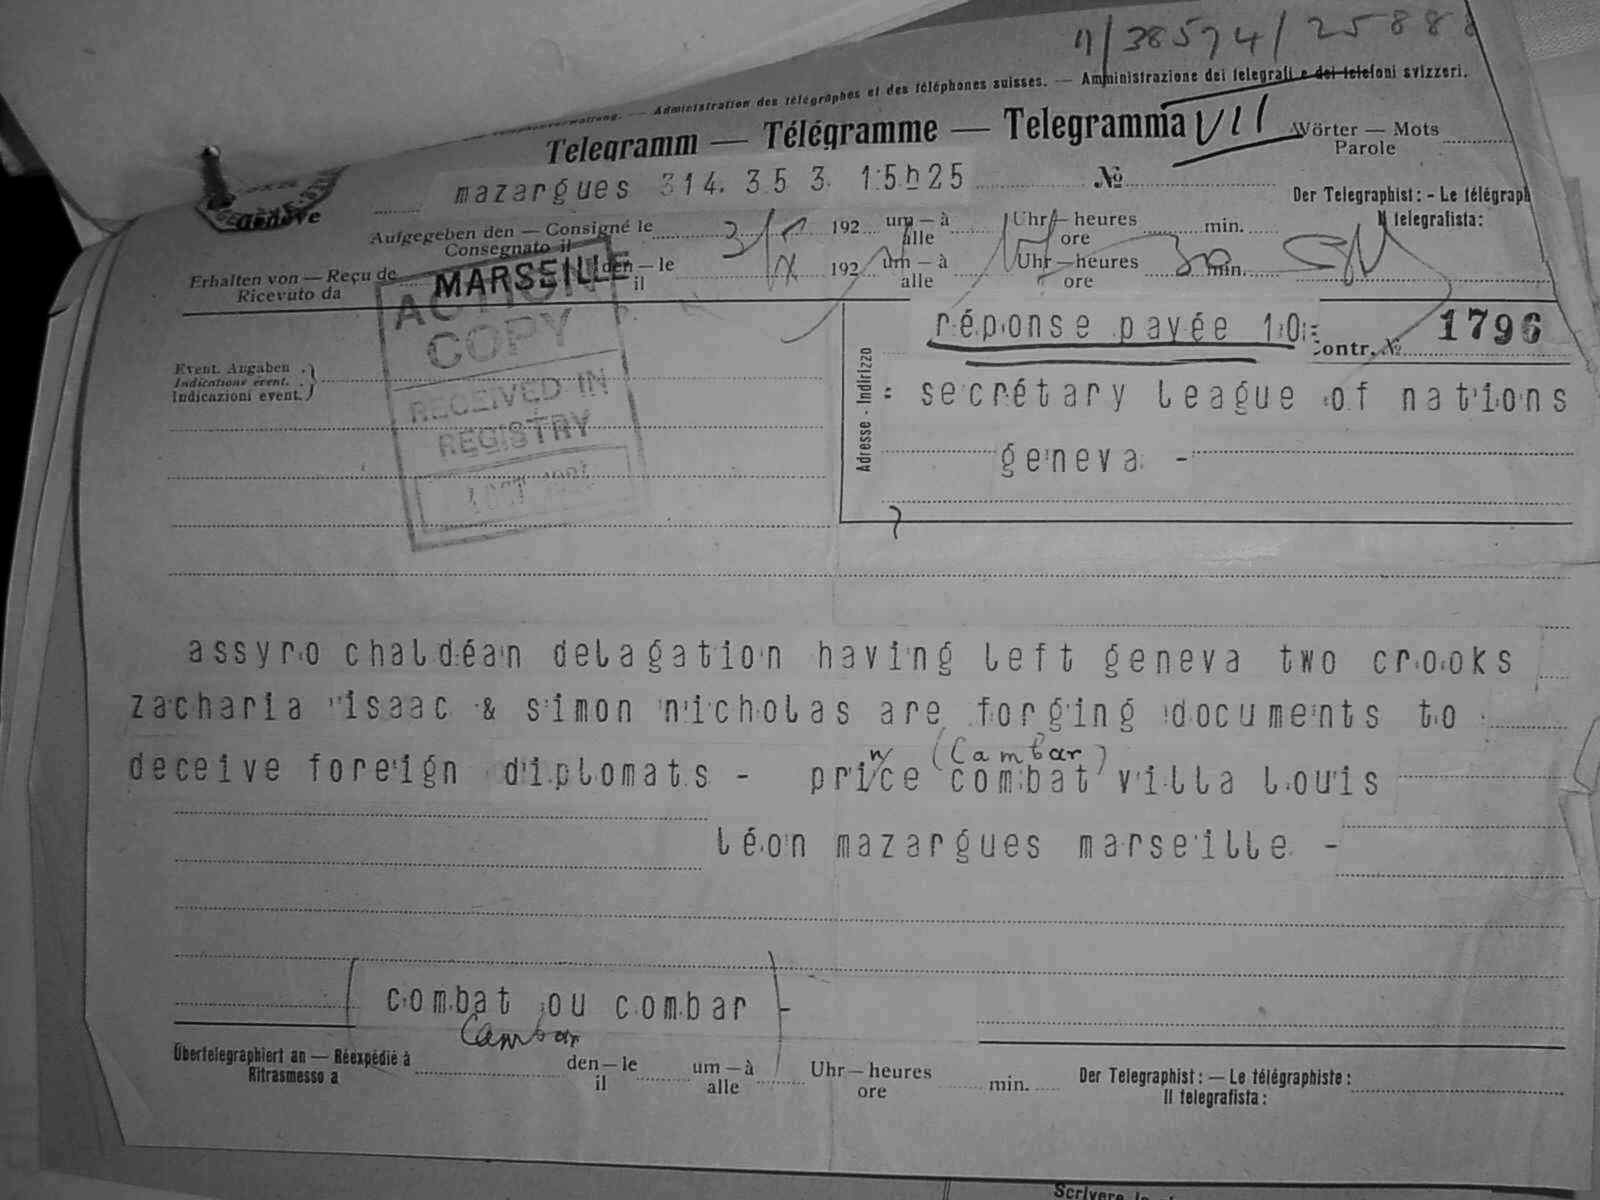 11/38574/25888
Administration des télégraphes et des téléphones suisses. — Amministrazione dei telegrafi e dei telefoni svizzeri.
Telegramm — Télégramme — Telegramma VII Wörter — Mots
Parole
mazargues 314. 35 3. 15h25 No
Der Telegraphist: - Le télégraph
Il telegrafista:
Genève
Aufgegeben den — Consigné le 3/ 192 um — à Uhr — heures min.
Consegnato il alle ore
Erhalten von — Reçu de MARSEILLE den — le 192 um — à Uhr — heures 30 min.
Ricevuto da il alle ore
ACTION
COPY
RECEIVED IN
REGISTRY
OCT
réponse payée 10=
Contr. No 1796
Event. Angaben
Indications évent.
Indicazioni event.
Adresse - Indirizzo
= secrétary league of nations
geneva -
assyro chaldéan delagation having left geneva two crooks
zacharia isaac & simon nicholas are forging documents to
n (Cambar)
deceive foreign diplomats - price combat villa louis
léon mazargues marseille -
combat ou combar -
Cambar
Übertelegraphiert an — Réexpédié à den — le um — à Uhr — heures min. Der Telegraphist: — Le télégraphiste:
Ritrasmesso a il alle ore Il telegrafista:
Scrivere